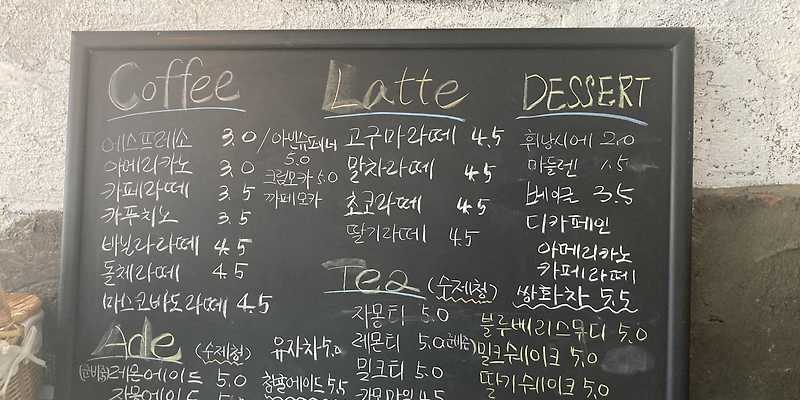 Coffee
에스프레소 3.0 / 아인슈페너 5.0
아메리카노 3.0
크림모카 5.0
카페라떼 3.5
까페모카
카푸치노 3.5
바닐라라떼 4.5
돌체라떼 4.5
마스코바도라떼 4.5
Ade (수제청)
유자차 5.0
레몬에이드 5.0
청귤에이드 5.5
자몽에이드 5.0
Latte
고구마라떼 4.5
말차라떼 4.5
초코라떼 4.5
딸기라떼 4.5
Tea (수제청)
자몽티 5.0
레몬티 5.0 (준비중)
밀크티 5.0
카모마일 4.5
DESSERT
휘낭시에 2.0
마들렌 1.5
베이글 3.5
디카페인
아메리카노
카페라떼
쌍화차 5.5
블루베리스무디 5.0
밀크쉐이크 5.0
딸기쉐이크 5.0